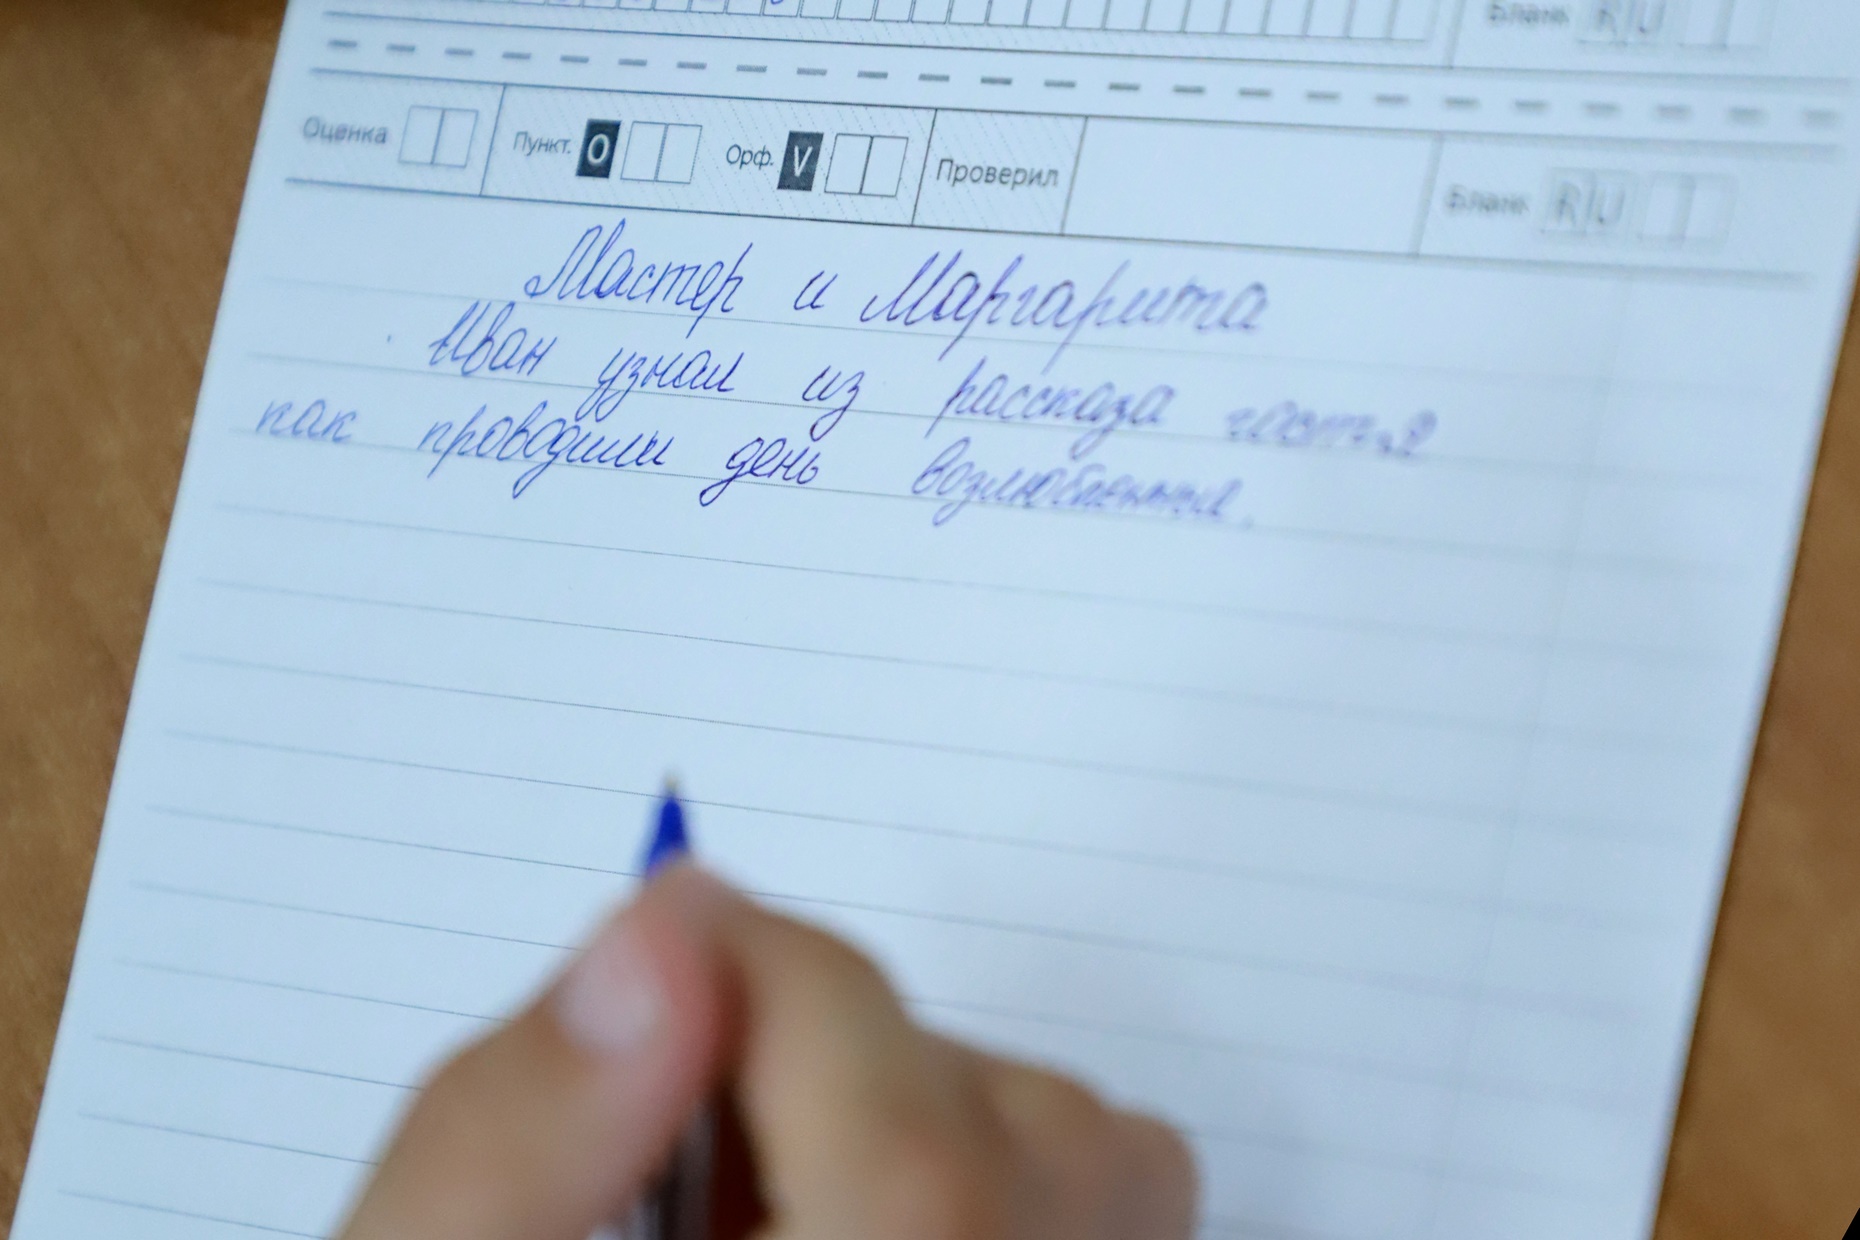 Бланк RU
Оценка Пункт. O Орф. V Проверил Бланк RU
Мастер и Маргарита
Иван узнал из рассказа гостя
как проводили день возлюбленные.